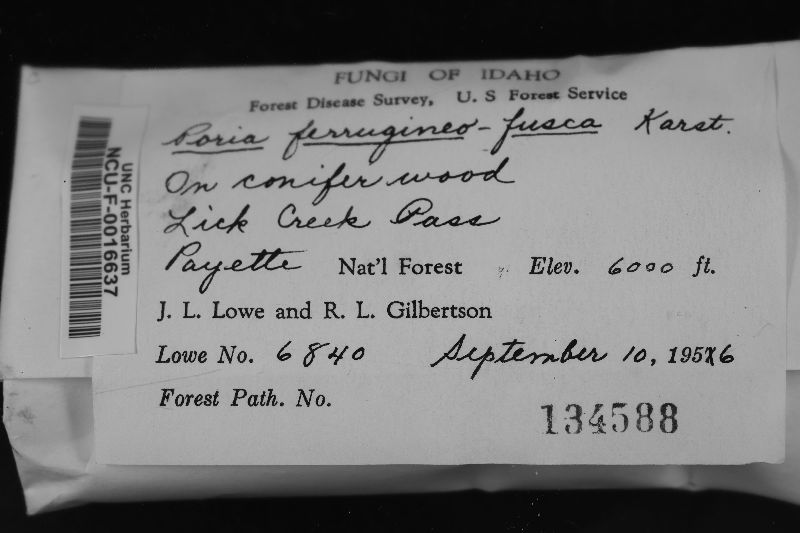 FUNGI OF IDAHO
Forest Disease Survey, U. S Forest Service
Poria ferrugineo-fusca Karst.
On conifer wood
Lick Creek Pass
Payette Nat'l Forest Elev. 6000 ft.
J. L. Lowe and R. L. Gilbertson
Lowe No. 6840 September 10, 1956
Forest Path. No.
134588
UNC Herbarium
NCU-F-0016637